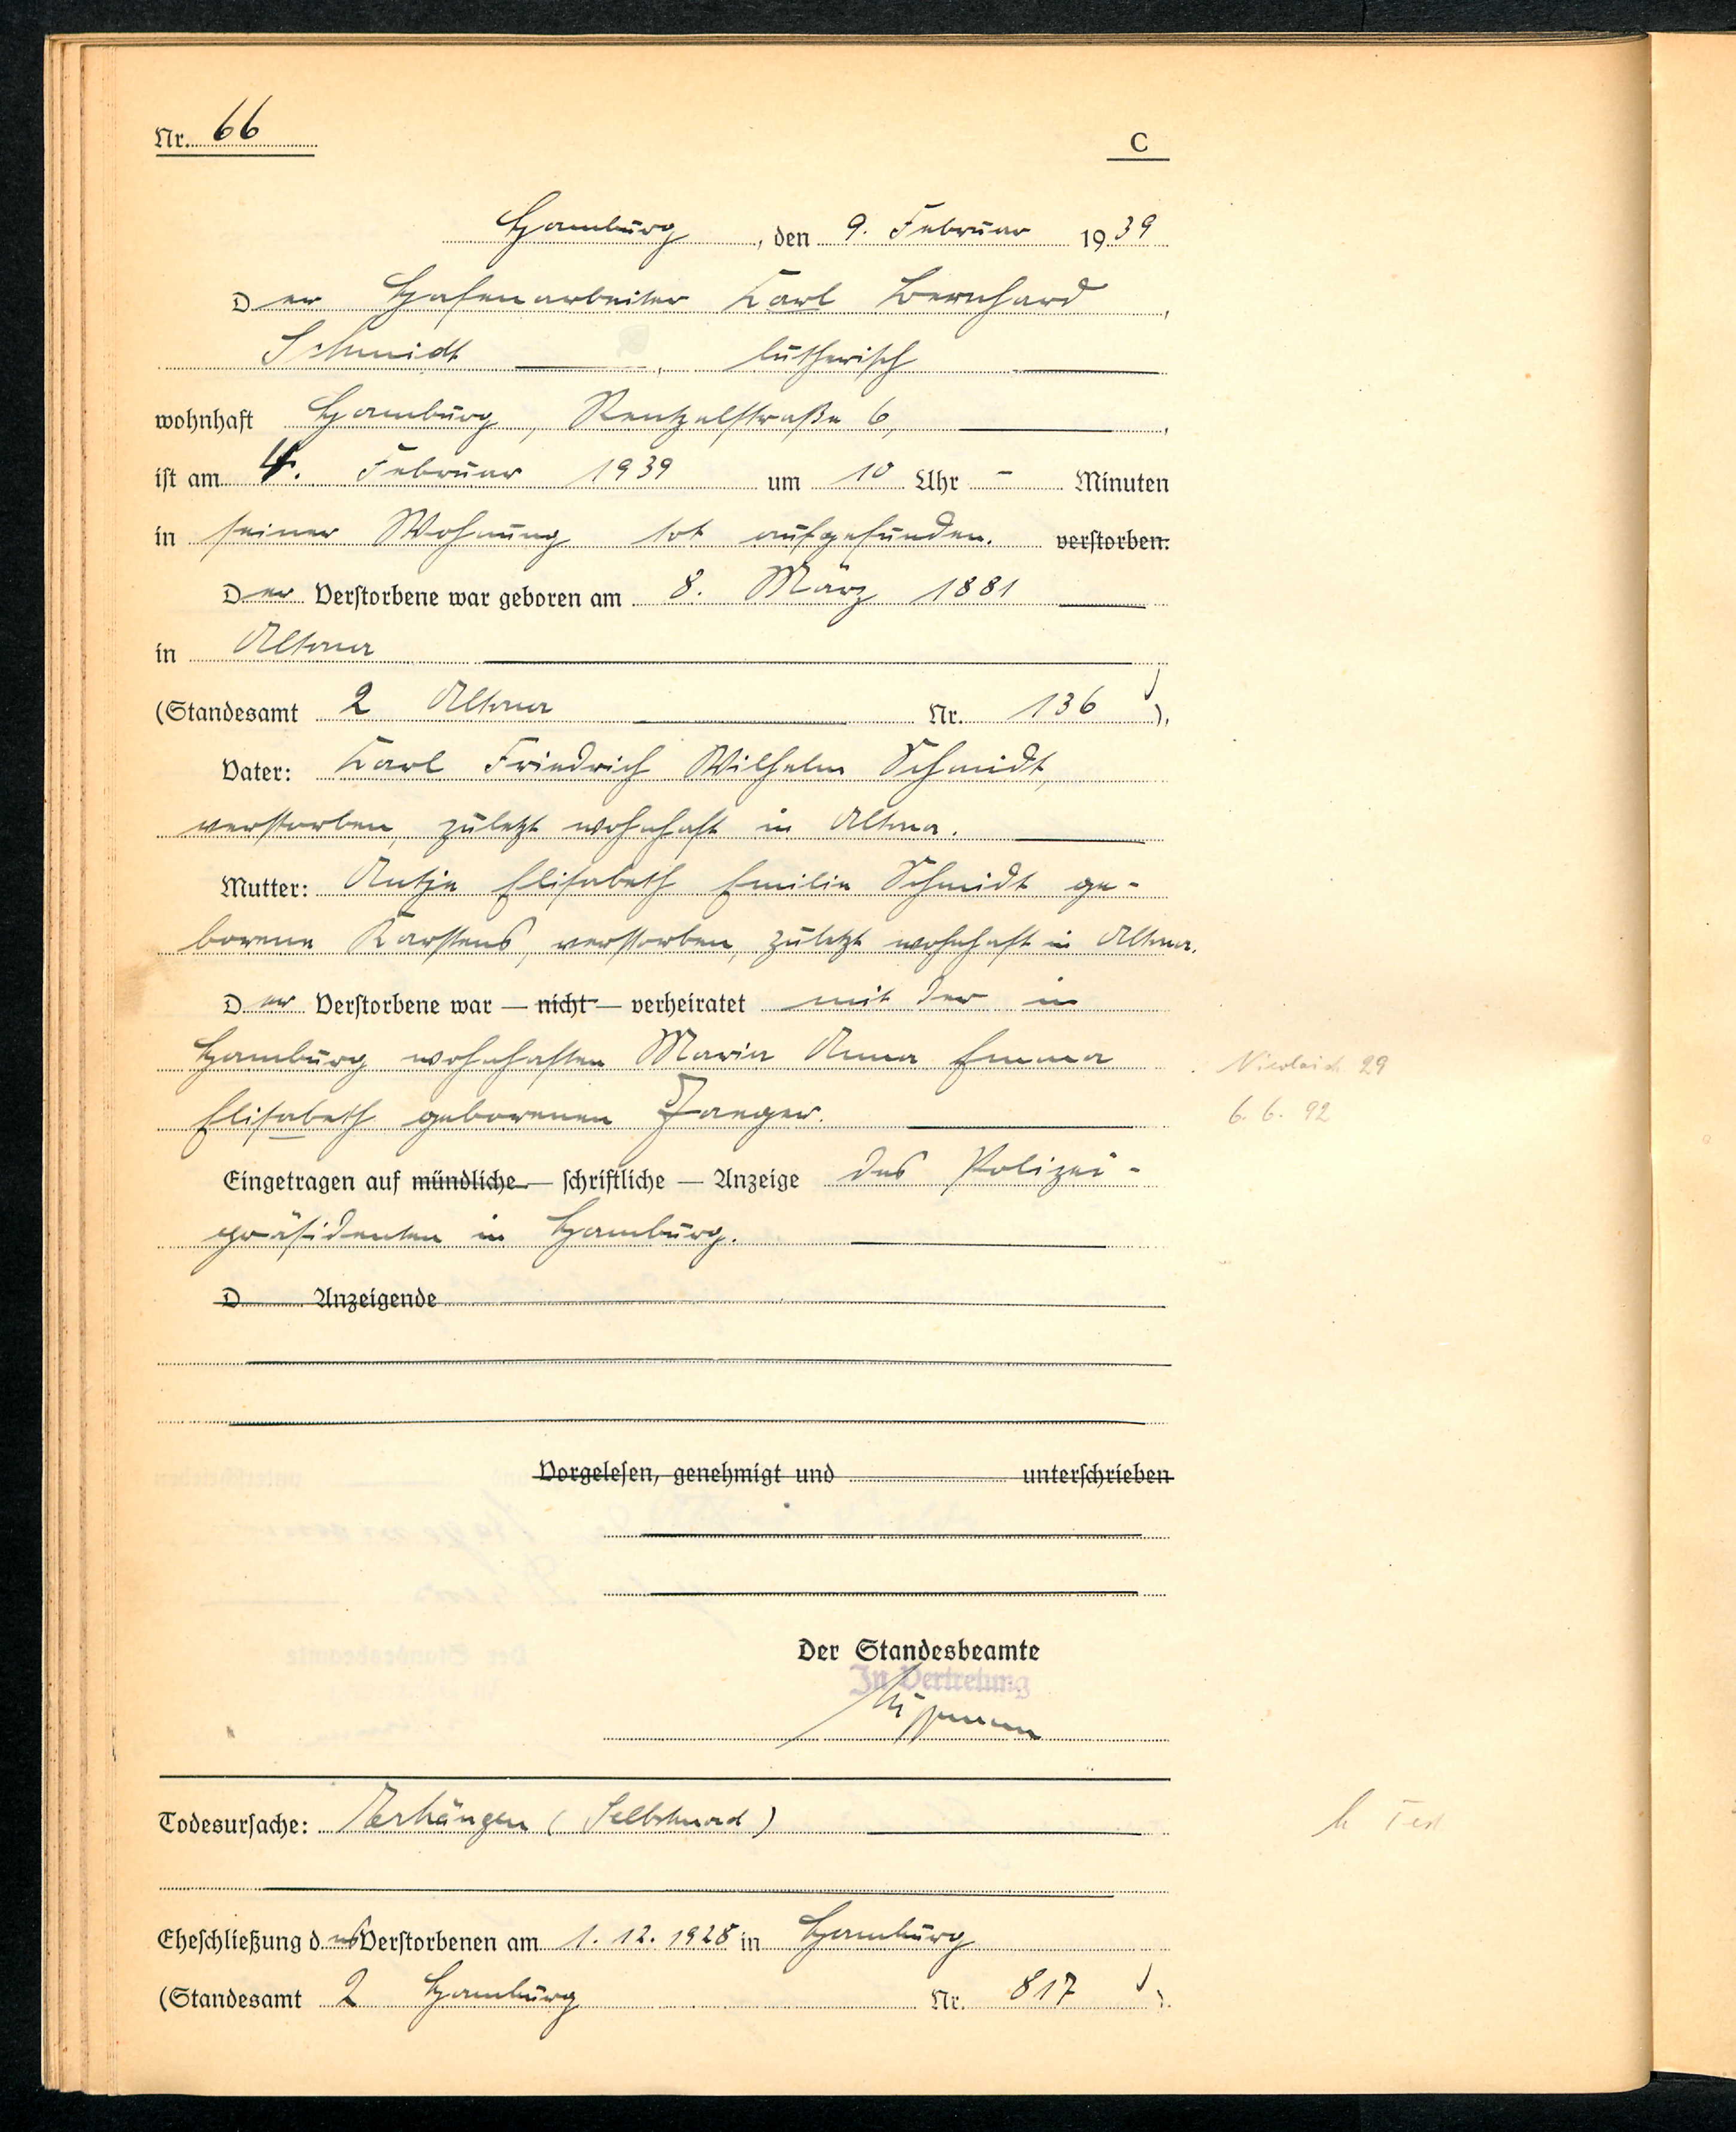 Nr. 66
C
Hamburg, den 9. Februar 1939
Der Hafenarbeiter Karl Bernhard
Schmidt, lutherisch
wohnhaft Hamburg, Rentzelstraße 6,
ist am 4. Februar 1939 um 10 Uhr - Minuten
in seiner Wohnung tot aufgefunden. verstorben.
Der Verstorbene war geboren am 8. März 1881
in Altona
(Standesamt 2 Altona Nr. 136),
Vater: Karl Friedrich Wilhelm Schmidt,
verstorben, zuletzt wohnhaft in Altona.
Mutter: Antje Elisabeth Emilie Schmidt ge-
borene Karstens, verstorben, zuletzt wohnhaft in Altona.
Der Verstorbene war — nicht — verheiratet mit der in
Hamburg wohnhaften Maria Anna Emma
Elisabeth geborenen Jaeger.
29
6. 6. 92
Eingetragen auf mündliche — schriftliche — Anzeige des Polizei-
präsidenten in Hamburg.
D Anzeigende
Vorgelesen, genehmigt und unterschrieben
Der Standesbeamte
In Vertretung
Todesursache: Erhängen (Selbstmord)
Eheschließung des Verstorbenen am 1. 12. 1928 in Hamburg
(Standesamt 2 Hamburg Nr. 817).